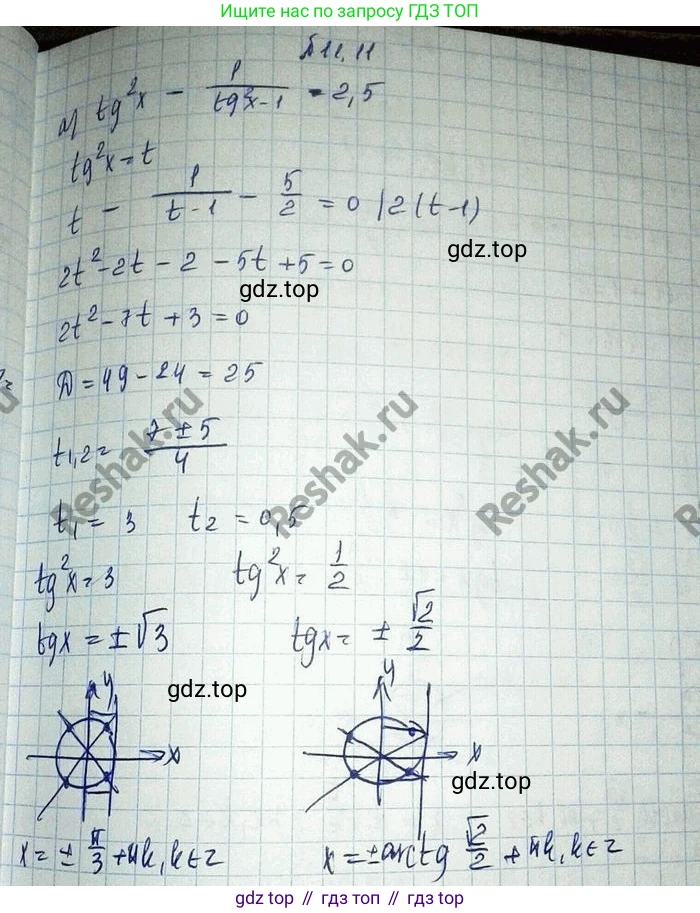 Ищите нас по запросу ГДЗ ТОП
№11.11
а) tg²x - 1/(tg²x-1) = 2,5
tg²x = t
t - 1/(t-1) - 5/2 = 0 |2(t-1)
gdz.top
2t² - 2t - 2 - 5t + 5 = 0
gdz.top
2t² - 7t + 3 = 0
D = 49 - 24 = 25
t1,2 = (7 ± 5)/4
Reshak.ru
Reshak.ru
Reshak.ru
t₁ = 3 t₂ = 0,5
tg²x = 3 tg²x = 1/2
tgx = ±√3 tgx = ± √2/2
gdz.top
y y
x x
gdz.top
x = ± π/3 + πk, k ∈ z x = ± arctg √2/2 + πk, k ∈ z
gdz.top // гдз.top // gdz.top